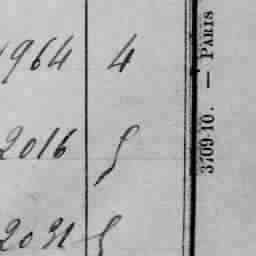 1964 4
2016 5
2031 5
3709-10. — PARIS